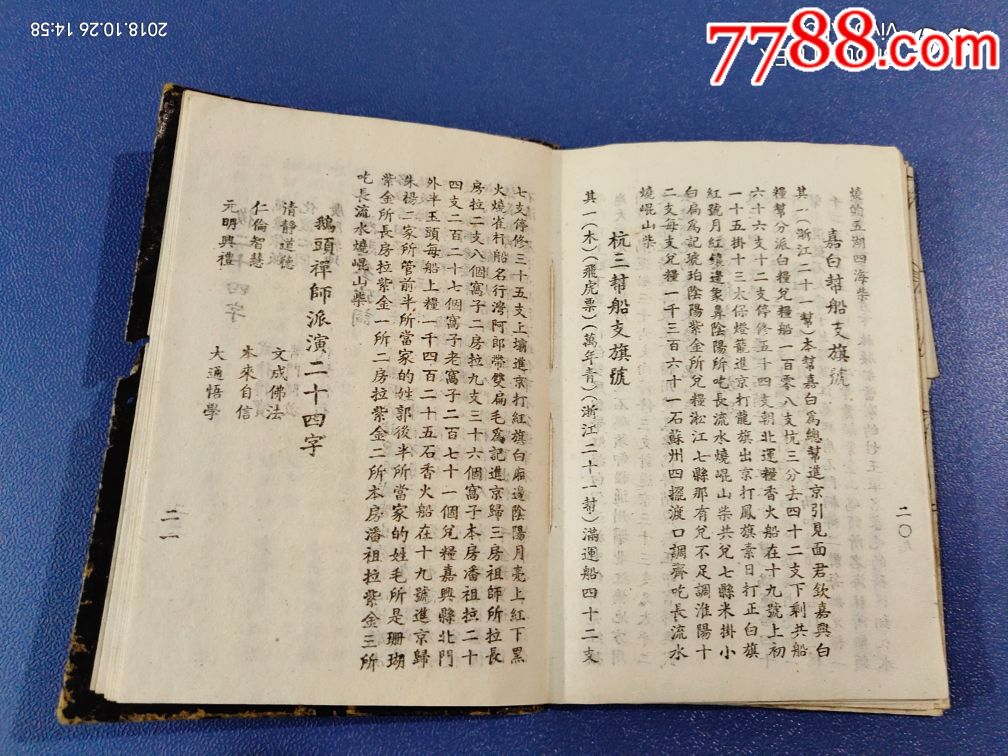 燒的五湖四海柴
嘉白幫船支旗號
其一(浙江二十一幫)本幫嘉白爲總幫進京引見面君欽嘉興白
糧幫分派白糧兌糧船一百零八支杭三分去四十二支下剩共船
六十六支十二支停修五十四支朝北運糧香火船在十九號上初
一十五掛十三太保燈籠進京打龍旗出京打鳳旗素日打正白旗
紅號月紅鑲邊象鼻陰陽所吃長流水燒崐山柴共兌七縣米掛小
白扁爲記琥珀陰陽紫金所兌糧淞江七縣那有兌不足調淮陽十
二支每支兌糧一千三百六十一石蘇州四擺渡口調齊吃長流水
燒崐山柴
杭三幫船支旗號
其一(木)(飛虎票)(萬年青)(浙江二十一幫)滿運船四十二支
二〇
七支停修三十五支上壩進京打紅旗白廂邊陰陽月亮上紅下黑
火燒雀杆船名行灣阿郎帶雙扁毛爲記進京歸三房祖師所拉長
房拉二支八個窩子二房拉九支三十六個窩子本房潘祖拉二十
四支二百二十七個窩子老窩子二百七十一個兌糧嘉興縣北門
外半玉頭每船上糧一千四百二十五石香火船在十九號進京歸
朱楊二家所管前半所當家的姓郭後半所當家的姓毛所是珊瑚
紫金所長房拉紫金一所二房拉紫金二所本房潘祖拉紫金三所
吃長流水燒崐山柴
鵝頭禪師派演二十四字
清静道德 文成佛法
仁倫智慧 本來自信
元明興禮 大通悟學
二一
7788.com
2018.10.26 14:58